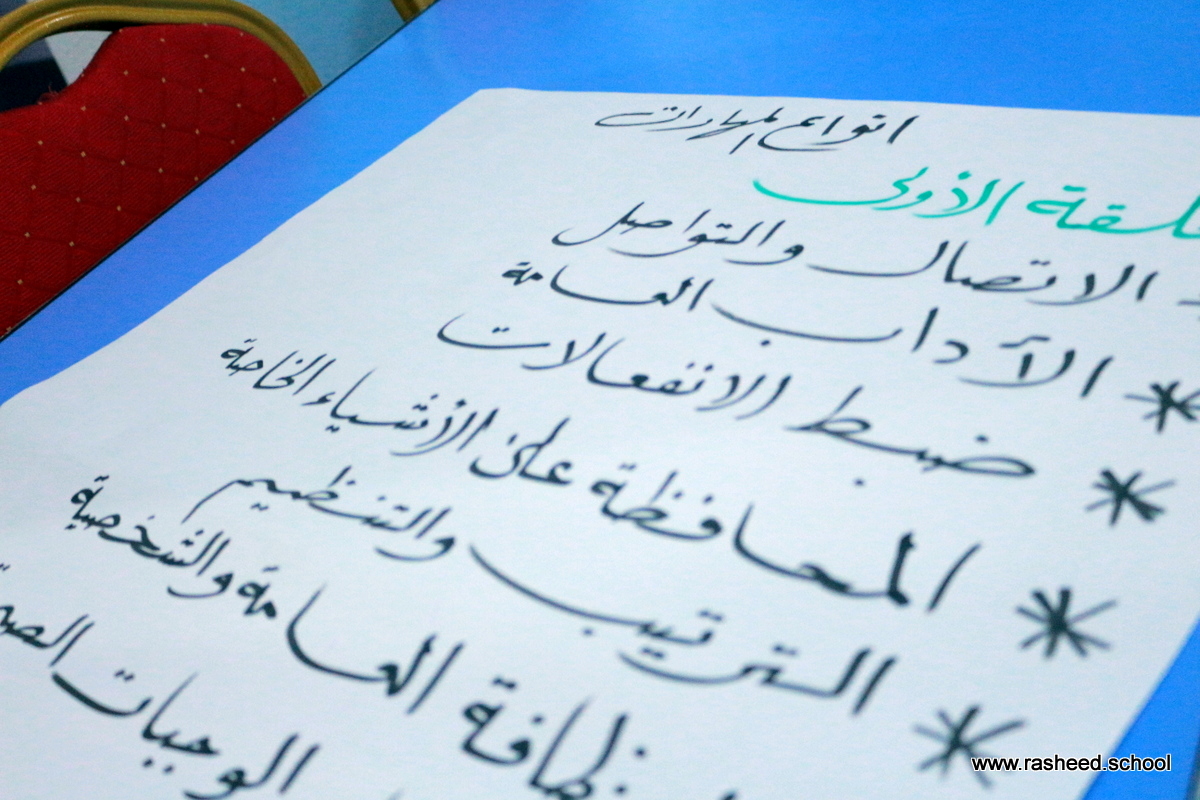 انواع المهارات
الأولى
الاتصال والتواصل
* الآداب العامة
* ضبط الانفعالات
* المحافظة على الأشياء الخاصة
* الترتيب والتنظيم
العامة والشخصية
الوجبات
www.rasheed.school